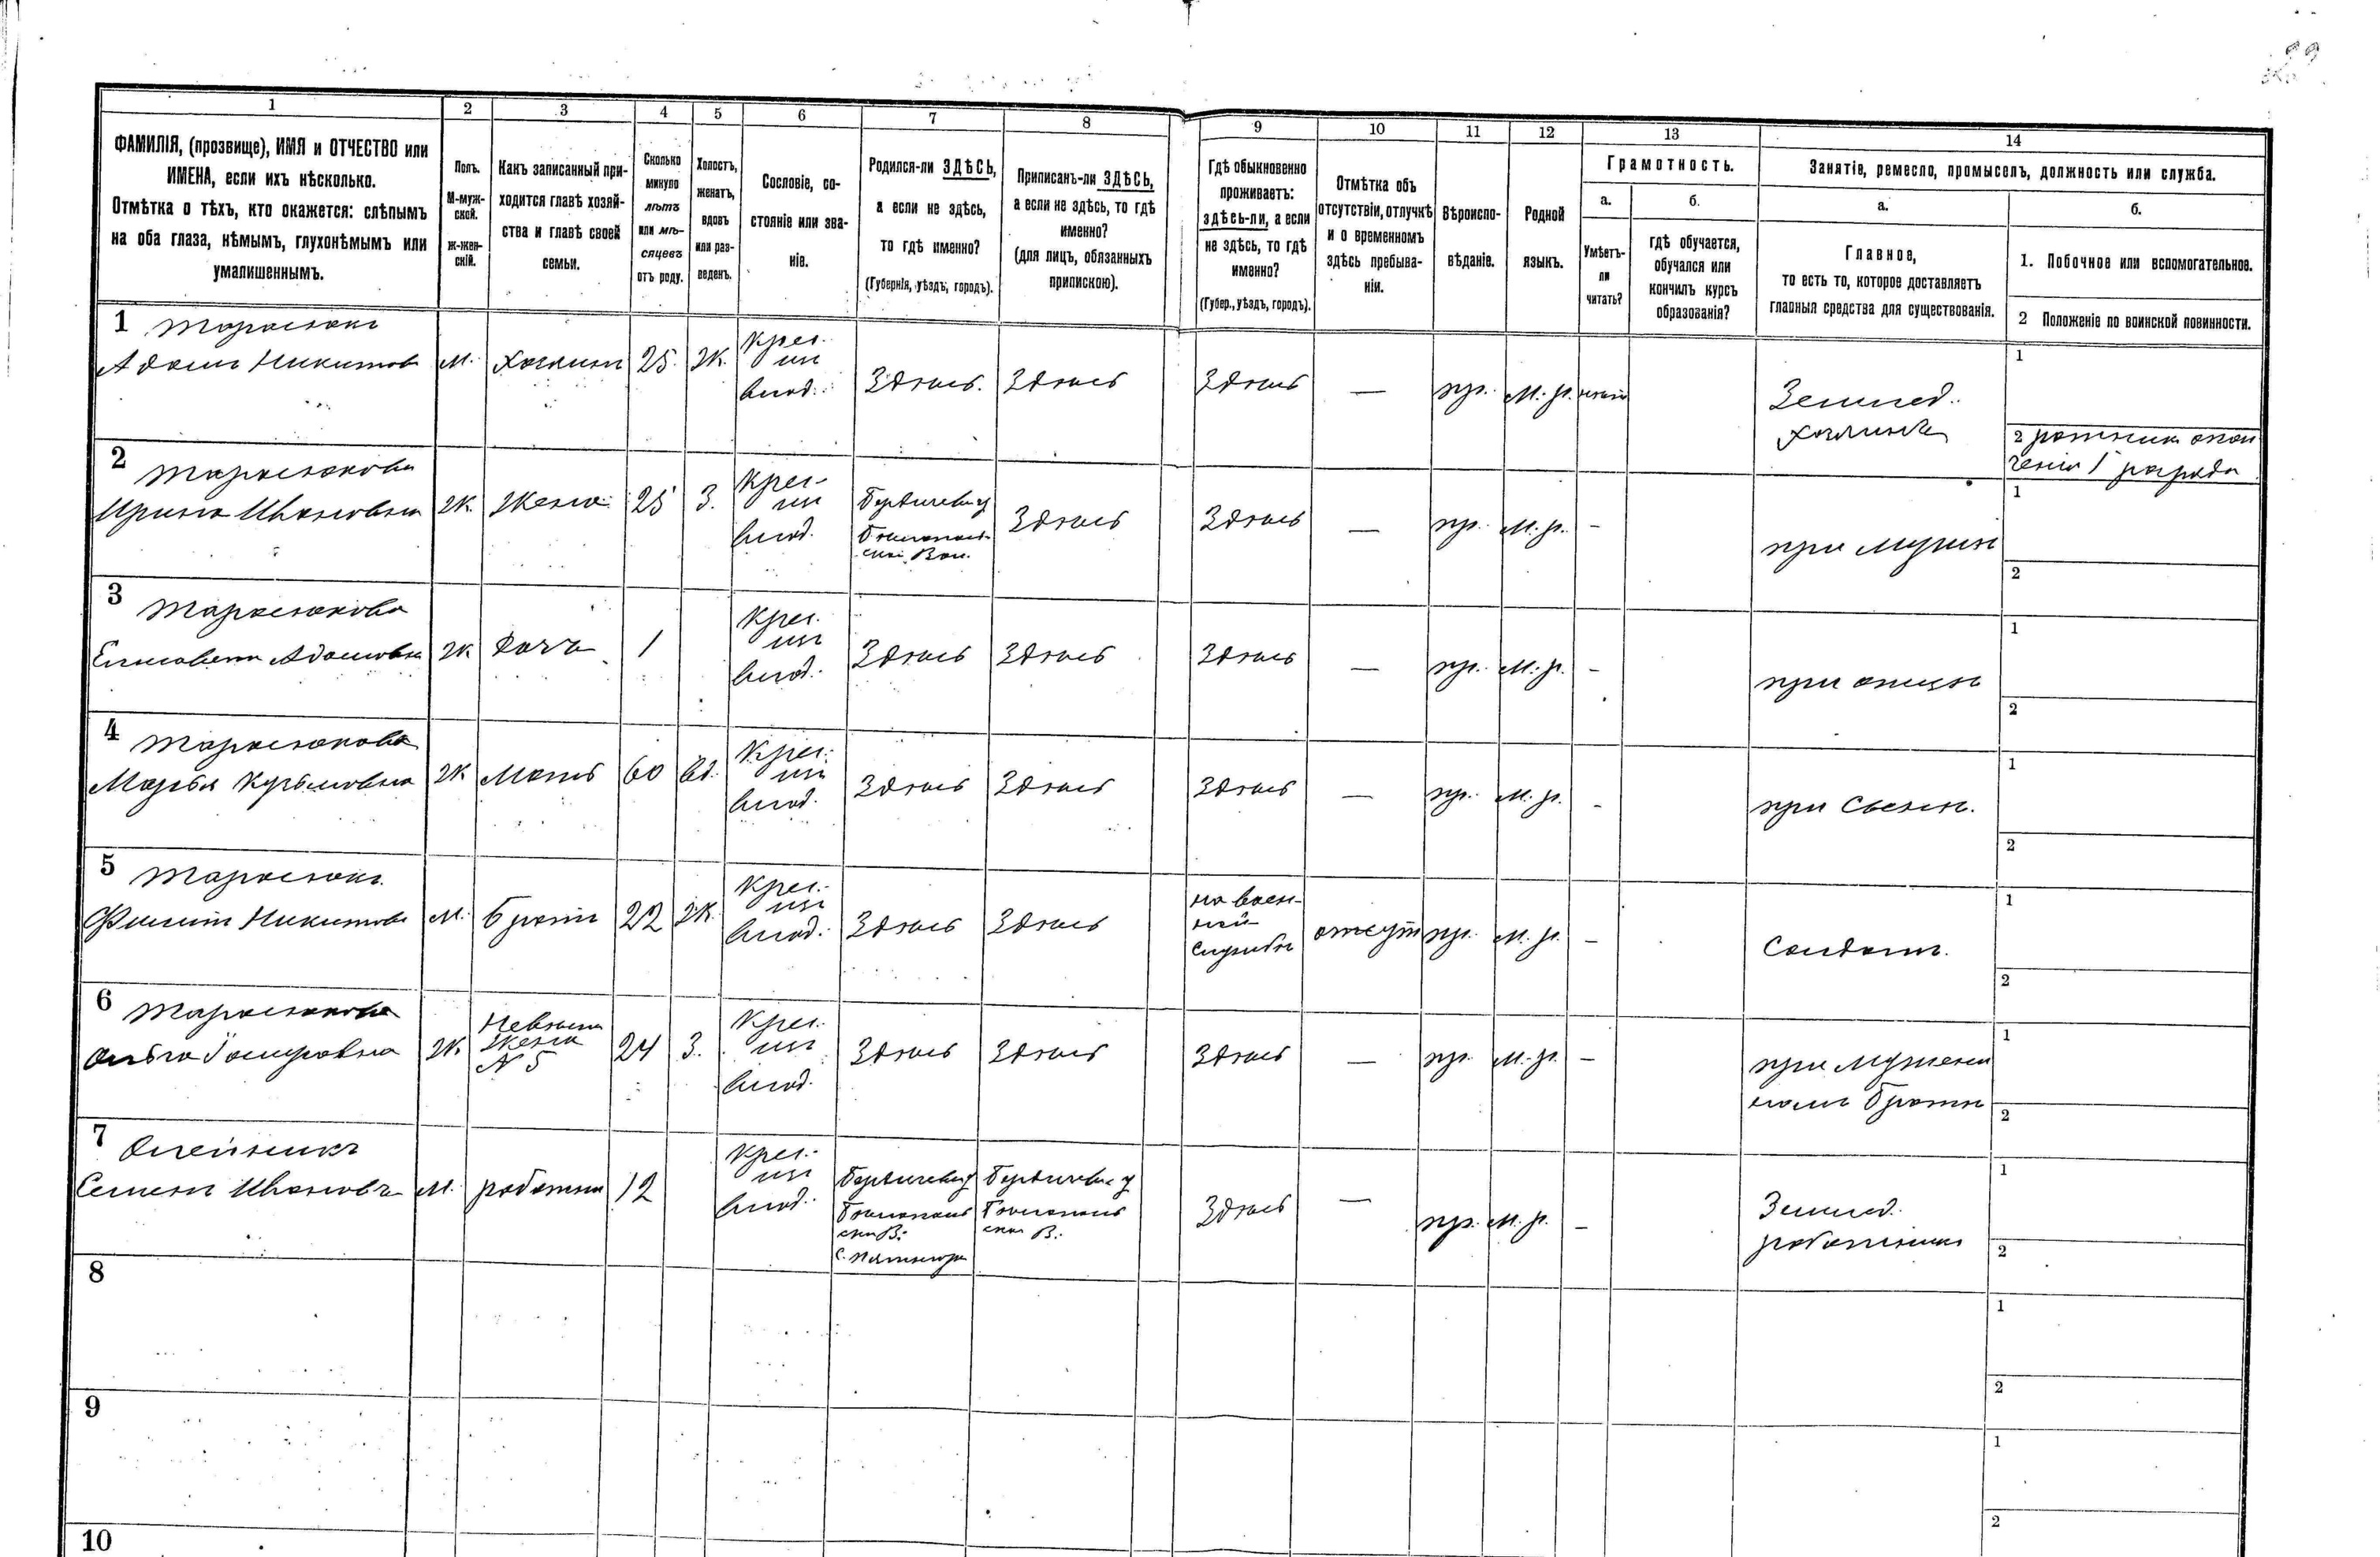 1
2
3
4
5
6
7
8
9
10
11
12
13
14
ФАМИЛІЯ, (прозвище), ИМЯ и ОТЧЕСТВО или
ИМЕНА, если ихъ нѣсколько.
Отмѣтка о тѣхъ, кто окажется: слѣпымъ
на оба глаза, нѣмымъ, глухонѣмымъ или
умалишеннымъ.
Полъ.
М-муж-
ской.
ж-жен-
скій.
Какъ записанный при-
ходится главѣ хозяй-
ства и главѣ своей
семьи.
Сколько
минуло
лѣтъ
или мѣ-
сяцевъ
отъ роду.
Холостъ,
женатъ,
вдовъ
или раз-
веденъ.
Сословіе, со-
стояніе или зва-
ніе.
Родился-ли ЗДѢСЬ,
а если не здѣсь,
то гдѣ именно?
(Губернія, уѣздъ, городъ).
Приписанъ-ли ЗДѢСЬ,
а если не здѣсь, то гдѣ
именно?
(для лицъ, обязанныхъ
припискою).
Гдѣ обыкновенно
проживаетъ:
здѣсь-ли, а если
не здѣсь, то гдѣ
именно?
(Губер., уѣздъ, городъ).
Отмѣтка объ
отсутствіи, отлучкѣ
и о временномъ
здѣсь пребыва-
ніи.
Вѣроиспо-
вѣданіе.
Родной
языкъ.
Грамотность.
а.
Умѣетъ-
ли
читать?
б.
гдѣ обучается,
обучался или
кончилъ курсъ
образованія?
Занятіе, ремесло, промыселъ, должность или служба.
а.
Главное,
то есть то, которое доставляетъ
главныя средства для существованія.
б.
1. Побочное или вспомогательное.
2 Положеніе по воинской повинности.
1 Тарасюкъ
Адамъ Никитовъ
М.
хозяинъ
25.
Ж.
Крес.
изъ
влад.
Здѣсь.
Здѣсь
Здѣсь
—
пр.
м. р.
нѣтъ
Землед.
хозяинъ
1
2 ратникъ опол
ченія 1 разряда
2 Тарасюкова
Ирина Ивановна
Ж.
Жена
25
З.
Крес.
изъ
влад.
Бердичевск у
Здѣсь
Здѣсь
—
пр.
м. р.
-
при мужѣ
1
2
3 Тарасюкова
Елисавета Адамовна
Ж
дочь
1
Крес.
изъ
влад.
Здѣсь
Здѣсь
Здѣсь
—
пр.
м. р.
-
при отцѣ
1
2
4 Тарасюкова
Марья Кузьмовна
Ж
Мать
60
вд.
Крес.
изъ
влад.
Здѣсь
Здѣсь
Здѣсь
—
пр.
м. р.
-
при сынѣ.
1
2
5 Тарасюкъ
Филипъ Никитовъ
М.
братъ
22
Ж.
Крес.
изъ
влад.
Здѣсь
Здѣсь
на воен-
ной
службѣ
отсут
пр.
м. р.
-
Солдатъ.
1
2
6 Тарасюкова
Ж.
Невѣстка
Жена
№ 5
24
З.
Крес.
изъ
влад.
Здѣсь
Здѣсь
Здѣсь
—
пр.
м. р.
-
братѣ
1
2
7 Олейникъ
Семенъ Ивановъ
М.
работник
12
Крес.
изъ
влад.
Бердичевск у
с. Пятигоры
Бердичевск у
Здѣсь
—
пр.
м. р.
-
Землед.
работникъ
1
2
8
1
2
9
1
2
10